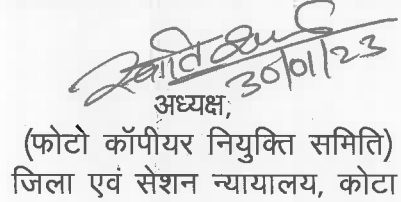 स्वाति शर्मा
30/01/23
अध्यक्ष,
(फोटो कॉपीयर नियुक्ति समिति)
जिला एवं सेशन न्यायालय, कोटा